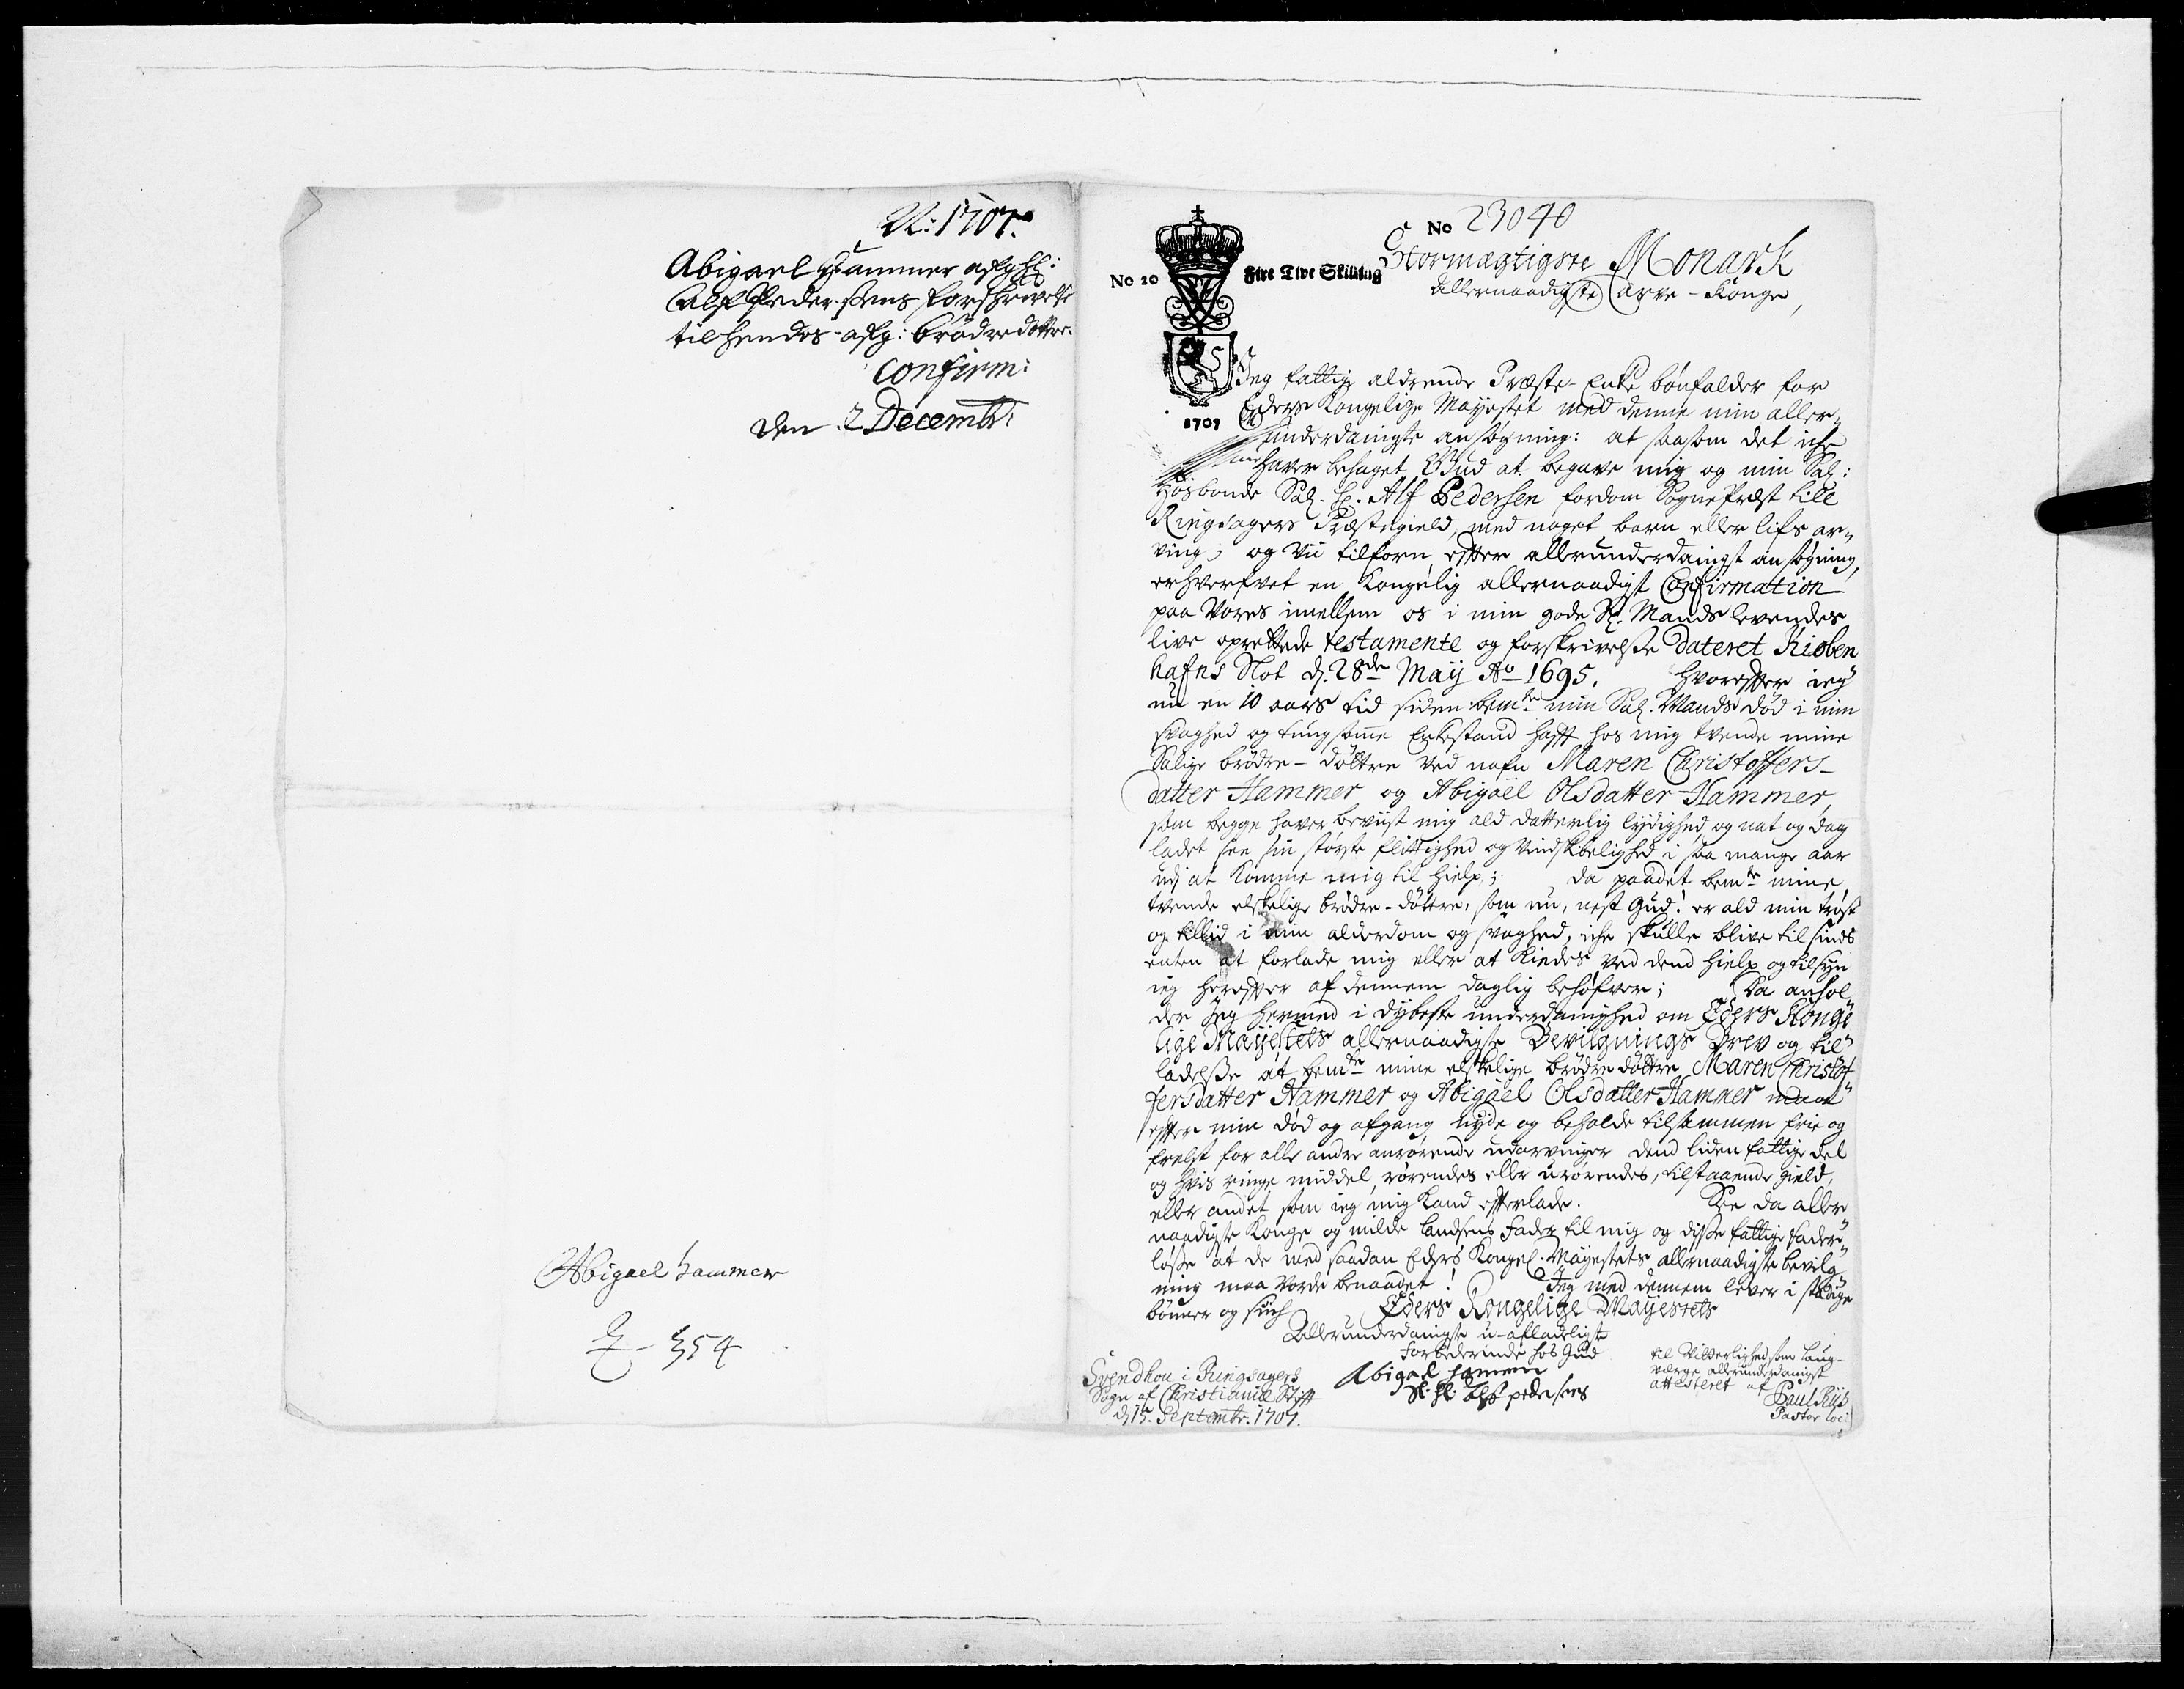 N: 1707.
Abigael Hammer afg: Hr:
Alf Pedersens forskrivelse
til hendes afg: brødredøttre
Confirm:
den 2 Decembr:
Abigael Hammer
354
No 23040
No 20
Fire Tive Skilling
1707
Stormægtigste Monark
Allernaadigste Arve-Konge,
Jeg fattige aldrende Præste-Enke bønfalder for
Eders Kongelige Mayestet med denne min aller-
underdanigste ansøgning: at saasom det iche
haver behaget Gud at begave mig og min Sal:
Hosbonde Sal. Hr. Alf Pedersen fordom SognePræst till
Ringsagers Præstegield, med noget barn eller lifs ar-
ving; og Vii tilforn, efter allerunderdanigst ansøgning,
erhvervet en Kongelig allernaadigst Confirmation
paa Vores imellem os i min gode Sl. Mands levendes
live oprettede testamente og forskrivelse dateret Kiøben
hafns Slot d. 28de Maij Ao 1695. Hvorefter ieg
nu en 10 aars tid siden bemte min Sal. Mands død i min
svaghed og tungsomme Enkestand hafft hos mig tvende mine
Salige brødre-døttre ved nafn Maren Christoffers-
datter Hammer og Abigael Olsdatter Hammer,
som begge haver beviist mig ald datterlig lydighed, og nat og dag
ladet see sin største flittighed og Vindskibelighed i saa mange aar
udj at komme mig til hielp; da paadet bemte mine
tvende elskelige brødre-døttre, som nu, nest Gud! er ald min trøst
og tillid i min alderdom og svaghed, iche skulle blive til sinds
enten at forlade mig eller at kiedes ved dend hielp og tilsyn
ieg herefter af dennem daglig behøfver; Da anhol
der Jeg hermed i dybeste underdanighed om Eders Konge
lige Mayestets allernaadigste Bevilgnings Brev og til
ladelse at bemte mine elskelige brødre døttre Maren Christof
fersdatter Hammer og Abigael Olsdatter Hammer maa
efter min død og afgang nyde og beholde tilsammen frie og
frelst for alle andre anrørende udarvinger dend liden fattige del
og hvis ringe middel, rørendes eller urørendes, tilstaaende gield,
eller andet som ieg mig kand efterlade. See da aller
naadigste Konge og milde landsens Fader til mig og disse fattige fader-
løse at de med saadan Eders Kongel. Mayestets allernaadigste bevilg
ning maa vorde benaadet! Jeg med dennem lever i stedsige
bønner og suk
Eders Kongelige Mayestets
Allerunderdanigste u-afladeligste
Forbederinde hos Gud
Abigael Hammer
Sl. Hr: Alf pedersens
Svendhou i Ringsagers
Sogn af Christianiæ Stift
d. 15. Septembr. 1707.
til Vitterlighed som laug-
værge allerunderdanigst
attesteret af
Paul Riis
Pastor loci